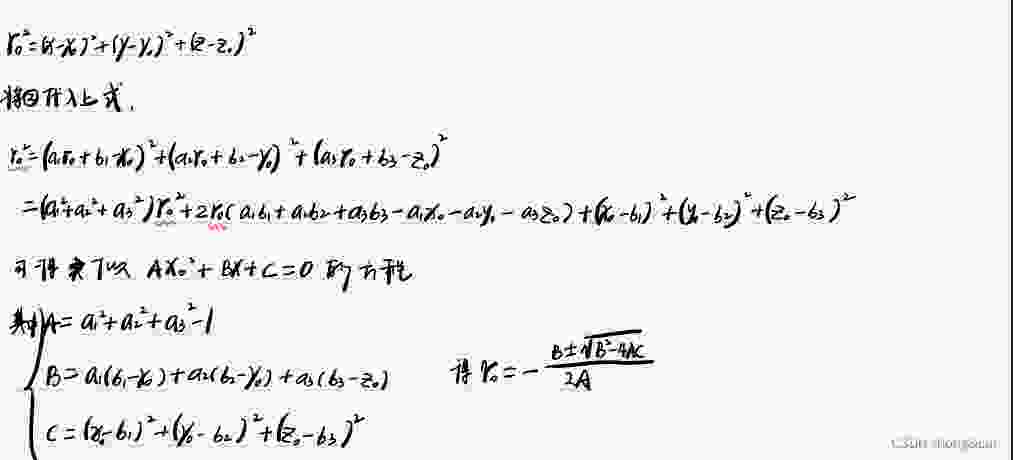 r₀²=(x-x₀)²+(y-y₀)²+(z-z₀)²
将④代入上式,
r₀²=(a₁r₀+b₁-x₀)²+(a₂r₀+b₂-y₀)²+(a₃r₀+b₃-z₀)²
=(a₁²+a₂²+a₃²)r₀²+2r₀(a₁b₁+a₂b₂+a₃b₃-a₁x₀-a₂y₀-a₃z₀)+(x₀-b₁)²+(y₀-b₂)²+(z₀-b₃)²
可得 AX₀²+BX+C=0 的方程
其中 A=a₁²+a₂²+a₃²-1
B=a₁(b₁-x₀)+a₂(b₂-y₀)+a₃(b₃-z₀) 得 r₀=-(B±√(B²-4AC))/(2A)
C=(x₀-b₁)²+(y₀-b₂)²+(z₀-b₃)²
CSDN